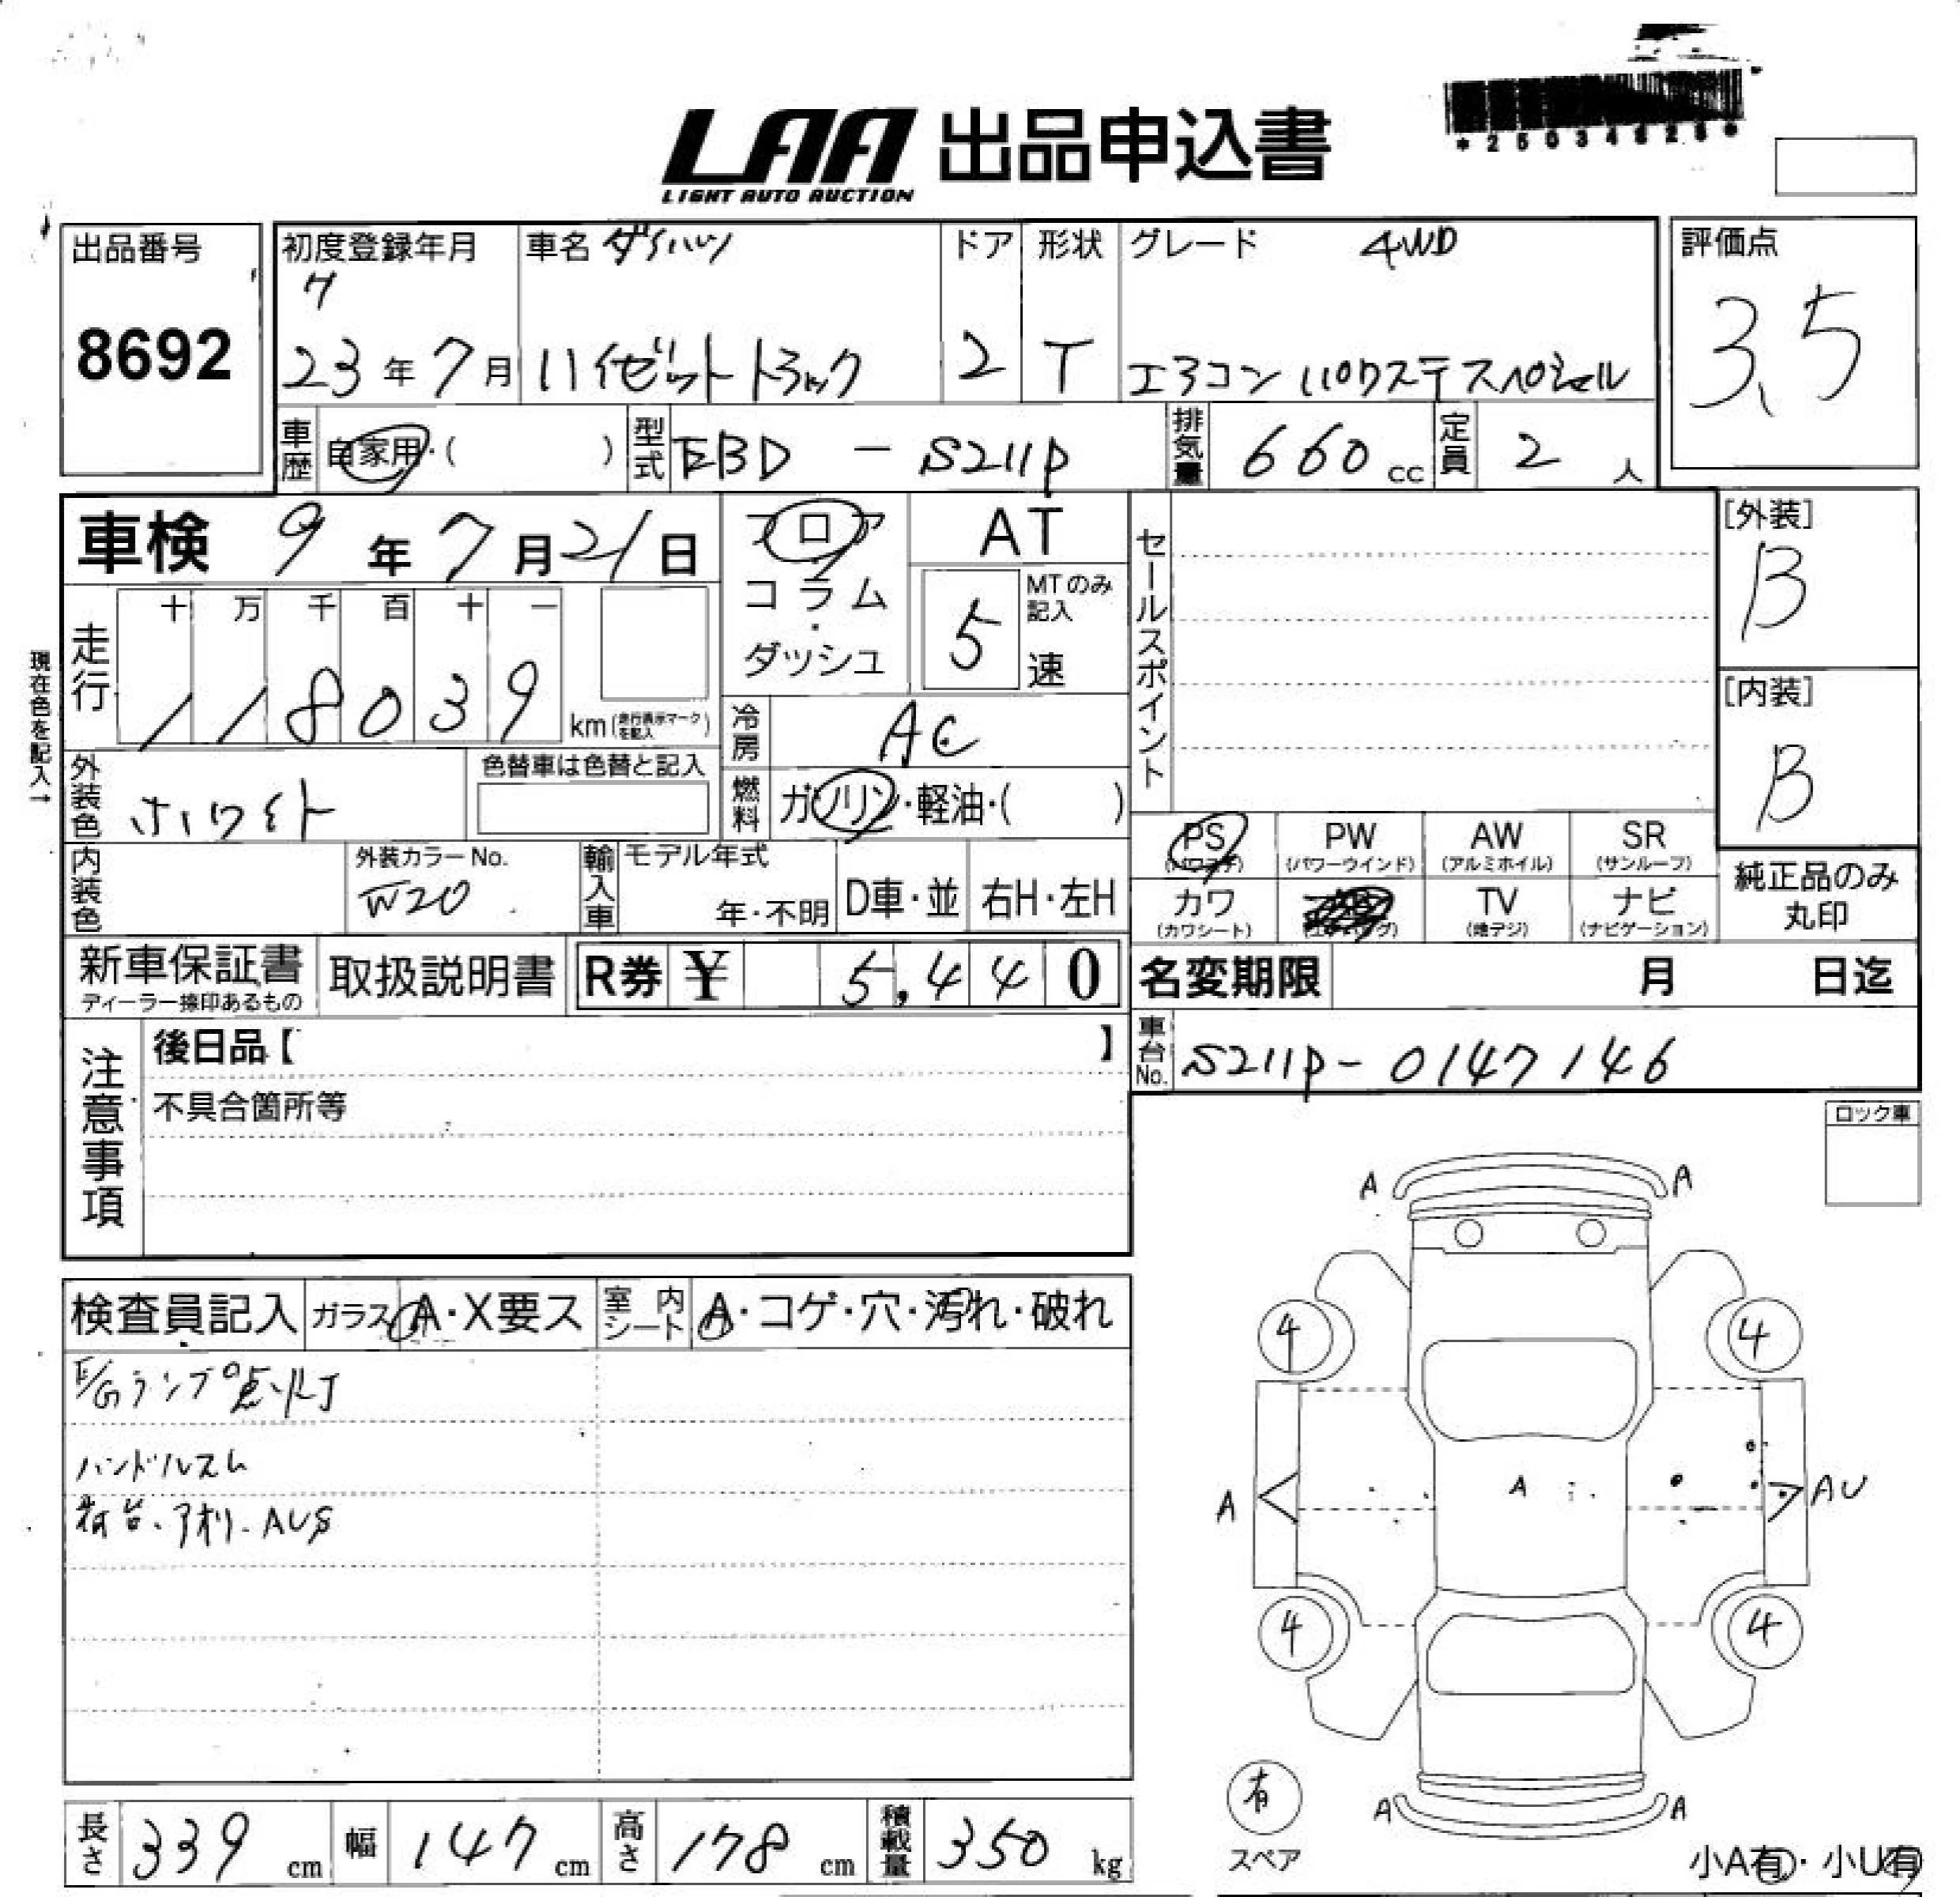 *25034626*
LAA 出品申込書
LIGHT AUTO AUCTION
出品番号
8692
初度登録年月
H
23年7月
車名 ダイハツ
ハイゼットトラック
ドア
2
形状
T
グレード 4WD
エアコン パワステスペシャル
評価点
3.5
車歴 自家用・( )
型式 EBD - S211P
排気量 660cc
定員 2人
車検 9年7月21日
フロア
コラム
・
ダッシュ
AT
5
MTのみ記入
速
セールスポイント
[外装]
B
[内装]
B
現在色を記入→
走行
十 万 千 百 十 一
1 1 8 0 3 9 km(走行表示マークを記入)
冷房 AC
外装色 ホワイト
色替車は色替と記入
燃料 ガソリン・軽油・( )
PS
(パワステ)
PW
(パワーウインド)
AW
(アルミホイル)
SR
(サンルーフ)
カワ
(カワシート)
TV
(地デジ)
ナビ
(ナビゲーション)
純正品のみ
丸印
内装色
外装カラーNo.
W20
輸入車
モデル年式
年・不明
D車・並
右H・左H
新車保証書
ディーラー捺印あるもの
取扱説明書
R券 ¥ 5,440
名変期限 月 日迄
車台No. S211P-0147146
注意事項
後日品【 】
不具合箇所等
ロック車
検査員記入
ガラス A・X要ス
室内シート A・コゲ・穴・汚れ・破れ
E/Gランプ点灯
ハンドルスレ
荷台、アオリ、AUS
A A
4 4
A A AU
4 4
有
スペア
A A
小A有・小U有
長さ 339cm
幅 147cm
高さ 178cm
積載量 350kg